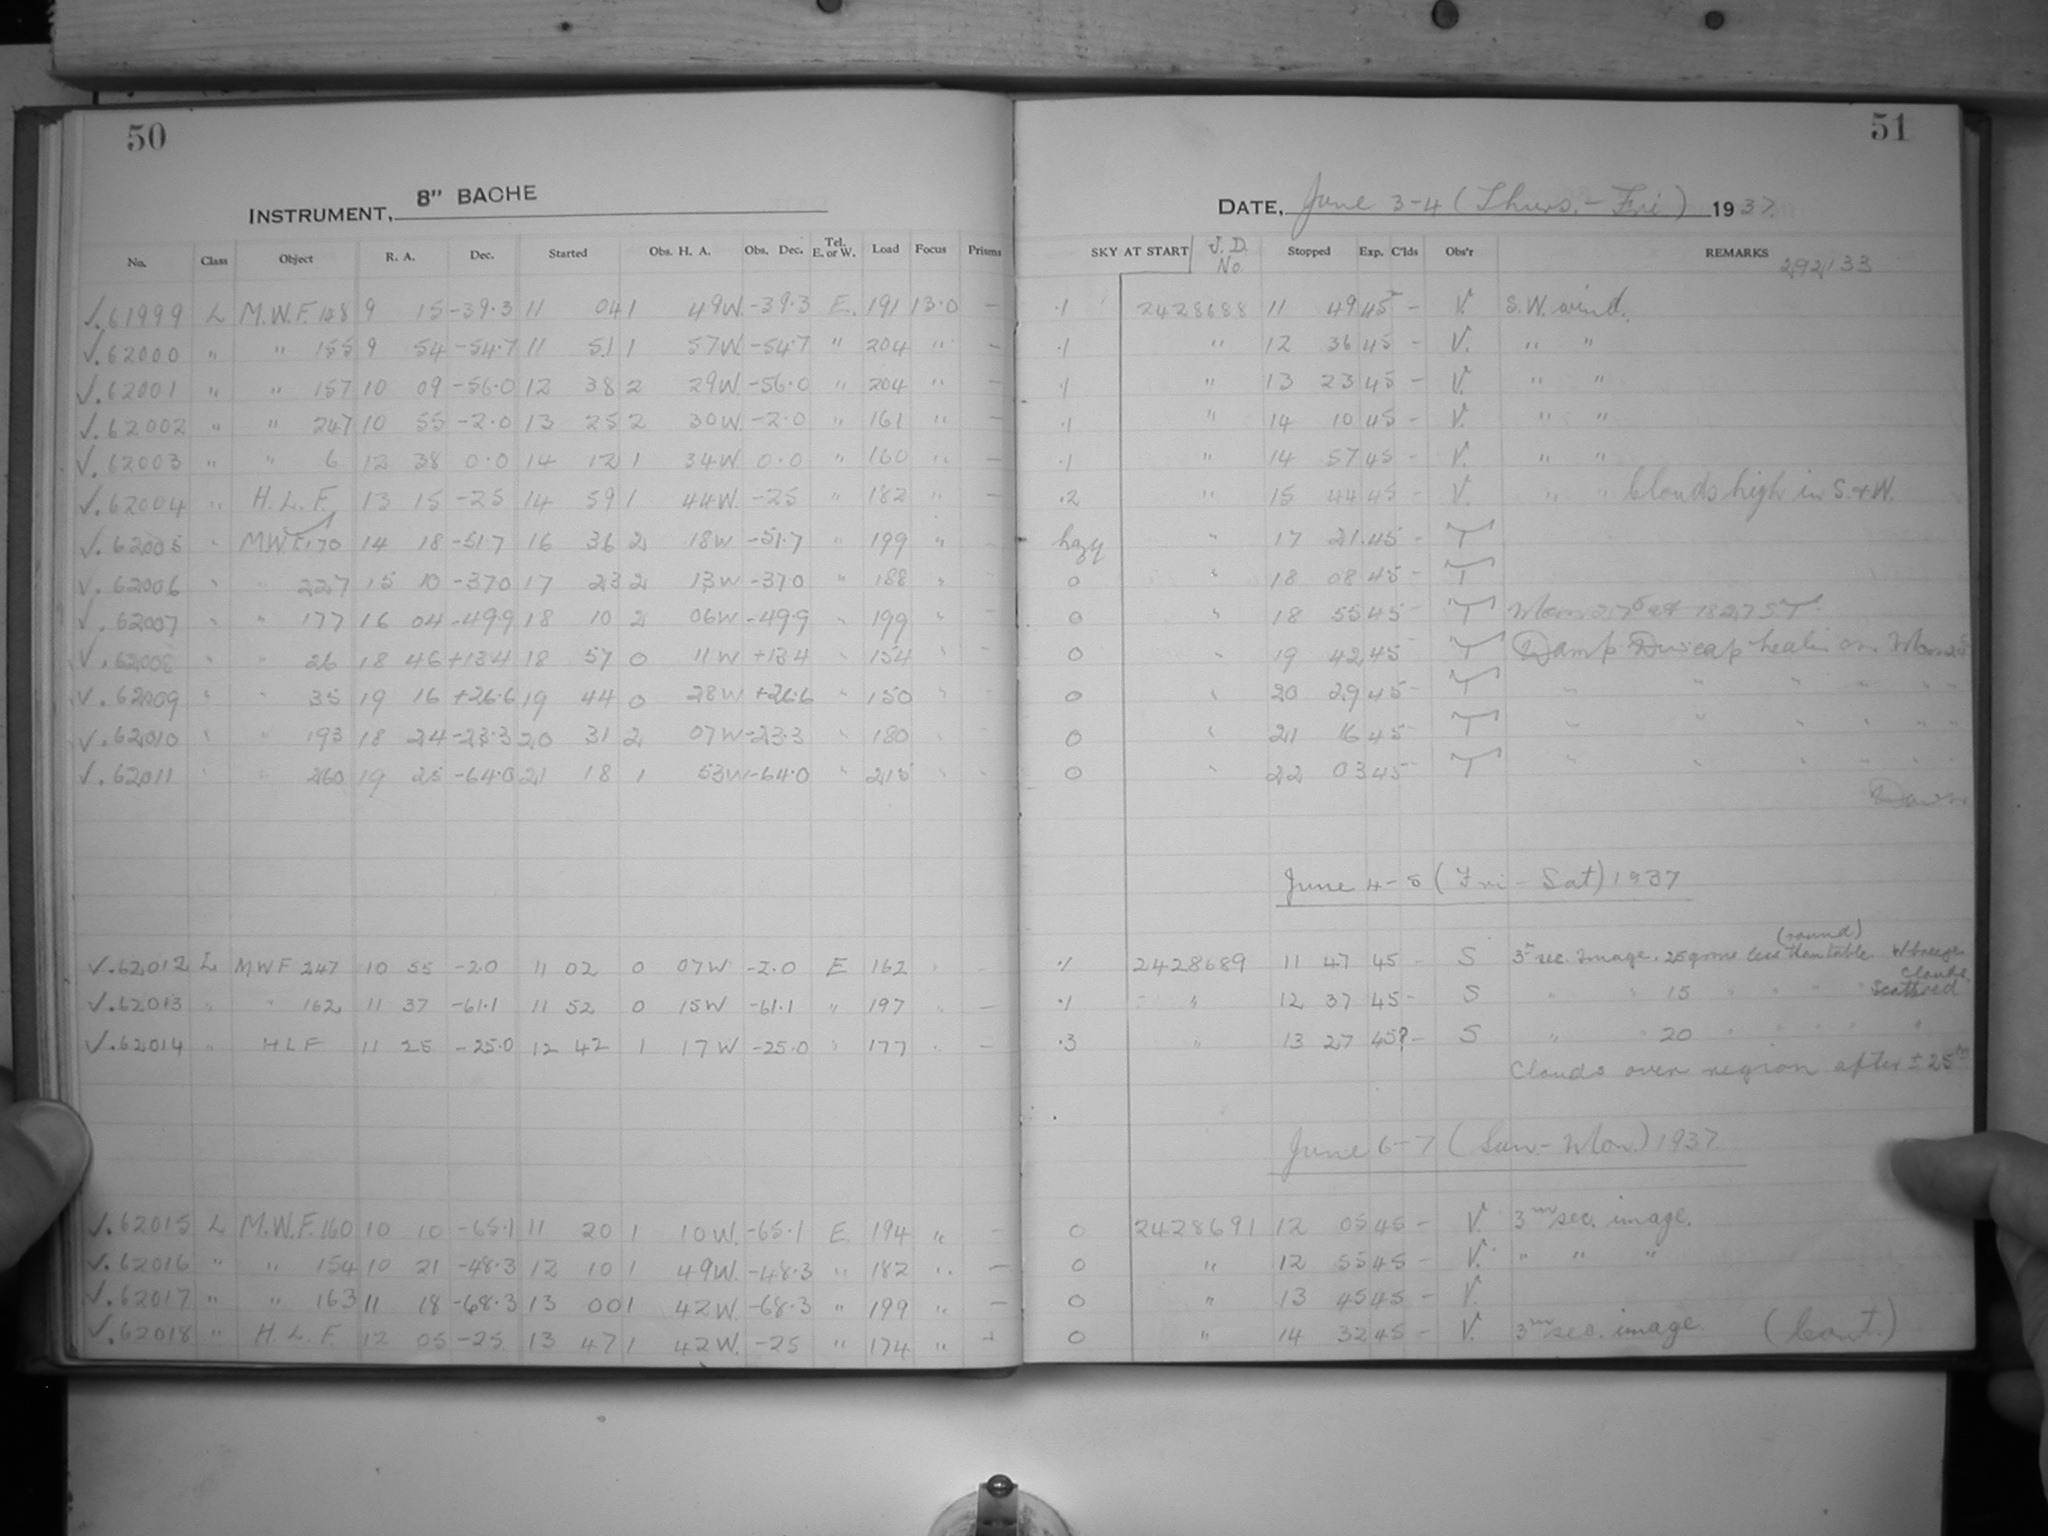 50
INSTRUMENT, 8" BACHE
No. Class Object R. A. Dec. Started Obs. H. A. Obs. Dec. Tel. E. or W. Load Focus Prisms
√.61999 L M.W.F. 148 9 15 -39.3 11 04 1 49W. -39.3 E. 191 13.0 -
√.62000 " " 155 9 54 -54.7 11 51 1 57W. -54.7 " 204 " -
√.62001 " " 157 10 09 -56.0 12 38 2 29W. -56.0 " 204 " -
√.62002 " " 247 10 55 -2.0 13 25 2 30W. -2.0 " 161 " -
√.62003 " " 6 12 38 0.0 14 12 1 34W. 0.0 " 160 " -
√.62004 " H.L.F. 13 15 -25 14 59 1 44W. -25 " 182 " -
√.62005 " MWF 170 14 18 -51.7 16 36 2 18W -51.7 " 199 " -
√.62006 " " 227 15 10 -37.0 17 23 2 13W -37.0 " 188 " -
√.62007 " " 177 16 04 -49.9 18 10 2 06W -49.9 " 199 " -
√.62008 " " 26 18 46 +13.4 18 57 0 11W +13.4 " 154 " -
√.62009 " " 35 19 16 +26.6 19 44 0 28W +26.6 " 150 " -
√.62010 " " 193 18 24 -23.3 20 31 2 07W -23.3 " 180 " -
√.62011 " " 260 19 25 -64.0 21 18 1 53W -64.0 " 215 " -
√.62012 L MWF 247 10 55 -2.0 11 02 0 07W -2.0 E 162 "
√.62013 " " 162 11 37 -61.1 11 52 0 15W -61.1 " 197 " -
√.62014 " HLF 11 25 -25.0 12 42 1 17W -25.0 " 177 " -
√.62015 L M.W.F. 160 10 10 -65.1 11 20 1 10W. -65.1 E. 194 " -
√.62016 " " 154 10 21 -48.3 12 10 1 49W. -48.3 " 182 " -
√.62017 " " 163 11 18 -68.3 13 00 1 42W. -68.3 " 199 " -
√.62018 " H.L.F. 12 05 -25 13 47 1 42W. -25 " 174 " -
51
DATE, June 3-4 (Thurs.-Fri) 1937.
SKY AT START J.D. No. Stopped Exp. C'lds Obs'r REMARKS 292,133
.1 2428688 11 49 45 - V. S.W. wind.
.1 " 12 36 45 - V. " "
.1 " 13 23 45 - V. " "
.1 " 14 10 45 - V. " "
.1 " 14 57 45 - V. " "
.2 " 15 44 45 - V. " " Clouds high in S.&W.
hazy " 17 21 45 - T
0 " 18 08 45 - T
0 " 18 55 45 - T
0 " 19 42 45 T Damp Dewcap heater on
0 " 20 29 45 - T " " " " " "
0 " 21 16 45 - T " " " " " "
0 " 22 03 45 - T " " " " " "
Dawn
June 4-5 (Fri - Sat) 1937
.1 2428689 11 47 45 - S 3m sec. image. 25 less than table (round) W breeze
.1 " 12 37 45 - S " " 15 " " " " Clouds Scattered
.3 " 13 27 45? - S " " 20 " " " " "
Clouds over region after ± 25m
June 6-7 (Sun.-Mon.) 1937.
0 2428691 12 05 45 - V. 3m/sec. image.
0 " 12 55 45 - V. " " "
0 " 13 45 45 - V.
0 " 14 32 45 - V. 3m/sec. image. (Cont.)